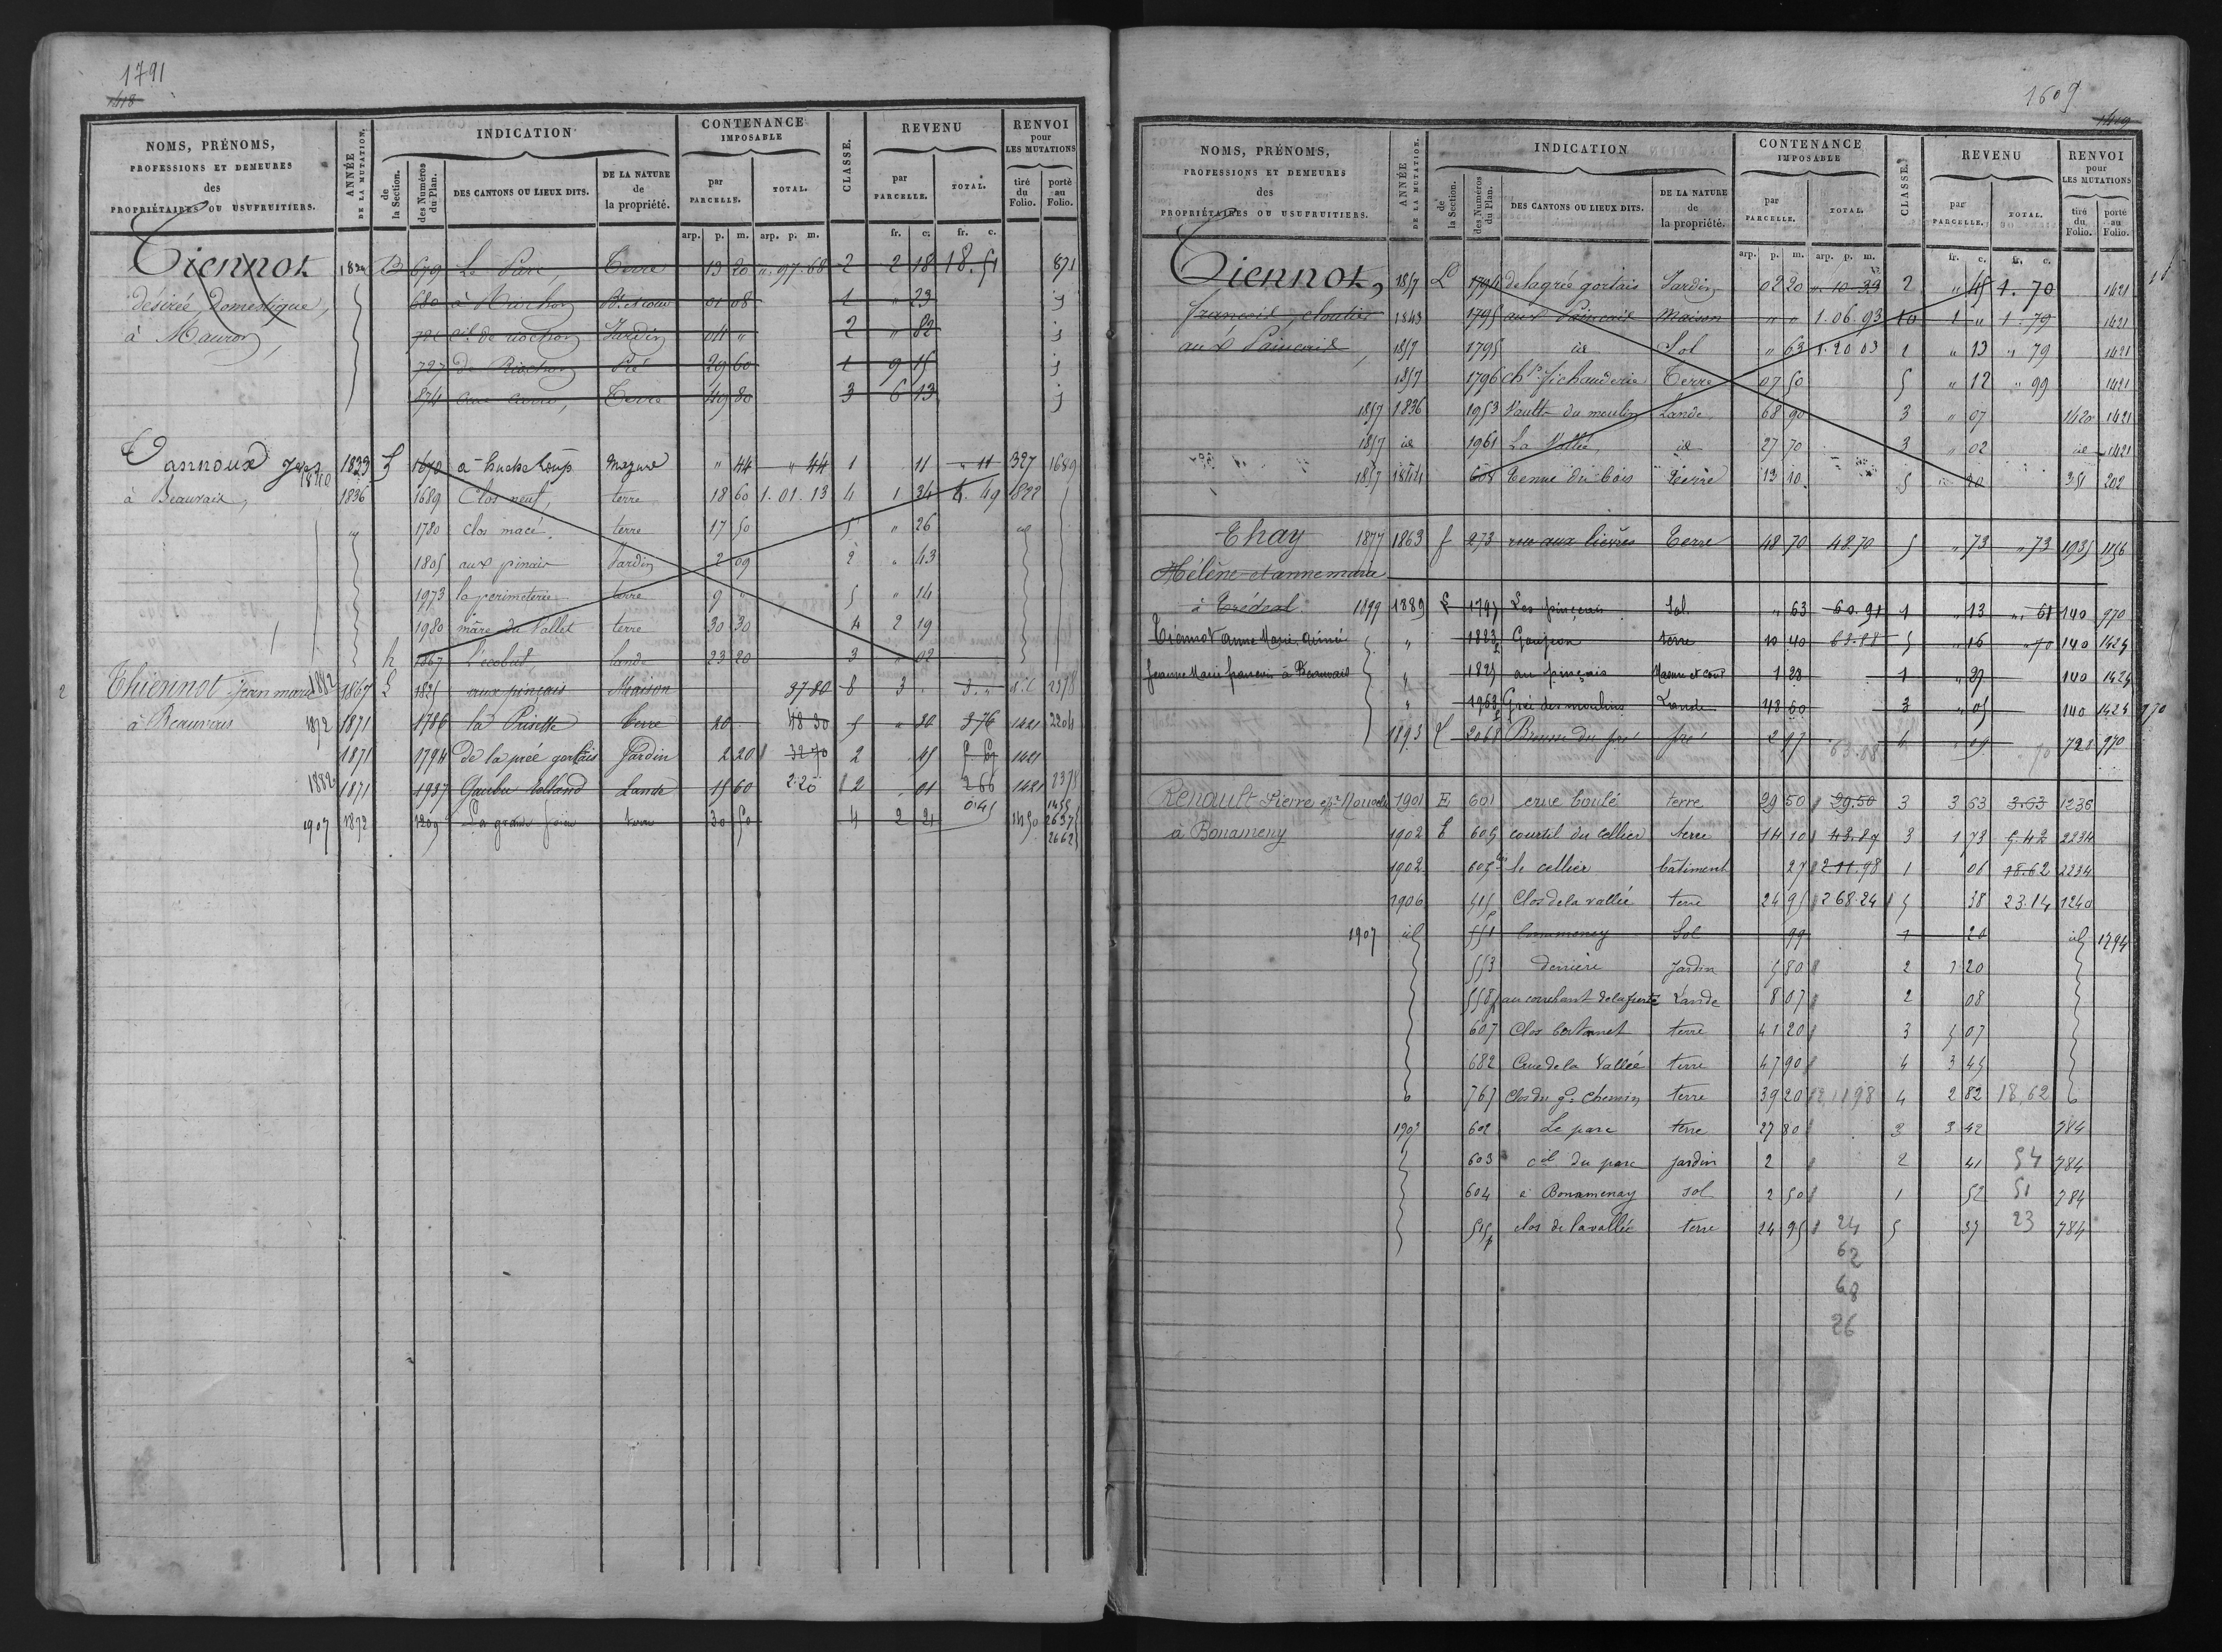 1791
1418
NOMS, PRÉNOMS,
PROFESSIONS ET DEMEURES
des
PROPRIÉTAIRES OU USUFRUITIERS.
ANNÉE
DE LA MUTATION.
INDICATION
de
la Section.
des Numéros
du Plan.
DES CANTONS OU LIEUX DITS.
DE LA NATURE
de
la propriété.
CONTENANCE
IMPOSABLE
par
PARCELLE.
TOTAL.
CLASSE.
REVENU
par
PARCELLE.
TOTAL.
RENVOI
pour
LES MUTATIONS
tiré
du
Folio.
porté
au
Folio.
arp. p. m. arp. p. m. fr. c. fr. c.
Tiennot B 679 Le Parc, Terre 13 20 " 97.68 2 2 18 18.51 871
désirée, Domestique, 680 à Riochon 01 08 1 " 23
à Mauron, de riochon Jardin 04 " 2 " 82
727 De Riochon Pré 29 60 1 9 15
874 Terre 49 80 3 6 13
Tannoux 1840 1823 L 1670 Mazure " 44 " 44 1 11 " 11 327 1689
à Beauvais, 1836 1689 Clos neuf, terre 18 60 1.01.13 4 1 34 4.49 1822
" 1780 clos macé, terre 17 50 5 " 26
1805 aux pinais Jardin 2 09 2 " 43
1973 la perimeterie terre 9 " 5 " 14
1980 mare du Vallet terre 30 30 4 2 19
h 1867 L'ecobut, lande 23 20 3 " 02
2 Thiennot Jean marie 1882 1867 L 1825 aux pinçais Maison 37 80 8 3 . 3." 2378
à Beauvais 1872 1871 1786 la Prisette Terre 20 48 30 5 " 30 3 76 1421 2204
1871 1794 De la préé gortais Jardin 2 20 32 70 2 45 1421
1882 1871 1937 Lande 15 60 2.20 2 01 2 66 1421 2378
0.45
1907 1872 1209 La grande terre 30 50 4 2 21 1450 1455
2637
2662
1609
1419
NOMS, PRÉNOMS,
PROFESSIONS ET DEMEURES
des
PROPRIÉTAIRES OU USUFRUITIERS.
ANNÉE
DE LA MUTATION.
INDICATION
de
la Section.
des Numéros
du Plan.
DES CANTONS OU LIEUX DITS.
DE LA NATURE
de
la propriété.
CONTENANCE
IMPOSABLE
par
PARCELLE.
TOTAL.
CLASSE.
REVENU
par
PARCELLE.
TOTAL.
RENVOI
pour
LES MUTATIONS
tiré
du
Folio.
porté
au
Folio.
arp. p. m. arp. p. m. fr. c. fr. c.
Tiennot, 1857 L 1794 de la gréé gortais Jardin 02 20 2 " 45 1.70 1421
françois, cloutier 1843 1795 aux Maison " " 1.06.93 10 1 " 1.79 1421
aux 1857 1795 id Sol " 63 1.20 03 1 " 13 " 79 1421
1857 1796 chp. fichauderie Terre 07 50 5 " 12 " 99 1421
1857 1836 1953 Vault du moulin Lande 68 90 3 " 07 1420 1421
1857 id 1961 La Vallée, id 27 70 3 " 02 id 1421
1857 1844 608 Tenue du bois Terre 13 10 5 " 20 351 202
Thay 1877 1863 f 273 rue aux lièvres Terre 48 70 48.70 5 " 73 " 73 1935 1156
Hélène et anne marie
à Trédeal 1899 1889 L 1795 Les pinçais Sol " 63 60.91 1 " 13 " 61 140 970
Tiennot anne Marie Aimée " 1823 Goujeon terre 10 40 63.88 5 " 16 " 70 140 1424
Jeanne Marie francoise à Beauvais " 1825 au pinçais Masure et cour 1 28 1 " 27 140 1424
" 1968 Gréé des moulins Lande 48 60 3 " 05 140 1424 970
1893 L 2068 pré 2 97 63.88 4 " 09 70 728 970
Renault Pierre 1901 E 601 crue boulé terre 29 50 29.50 3 3 63 3.63 1236
à Bonameny 1902 E 605 courtil du cellier terre 14 10 43.87 3 1 73 5.42 2234
1902 605 bis le cellier bâtiment 27 2 11.98 1 06 18.62 2234
1906 515 Clos de la vallée terre 24 95 2 68.24 5 38 23.14 1240
1907 id 551 bonameney Sol 99 1 20 id 1794
553 derrière Jardin 5 80 2 1 20
558 p au couchant de la Lande 8 07 2 08
607 Clos terre 41 20 3 5 07
682 Crue de la Vallée terre 47 90 4 3 45
767 Clos du gd chemin terre 39 20 2,11 98 4 2 82 18,62
1907 602 Le parc terre 27 80 3 3 42 784
603 cil du parc Jardin 2 2 41 54 784
604 à Bonamenay sol 2 50 1 52 51 784
515 p clos de la vallée terre 24 95 24 5 37 23 784
62
68
26